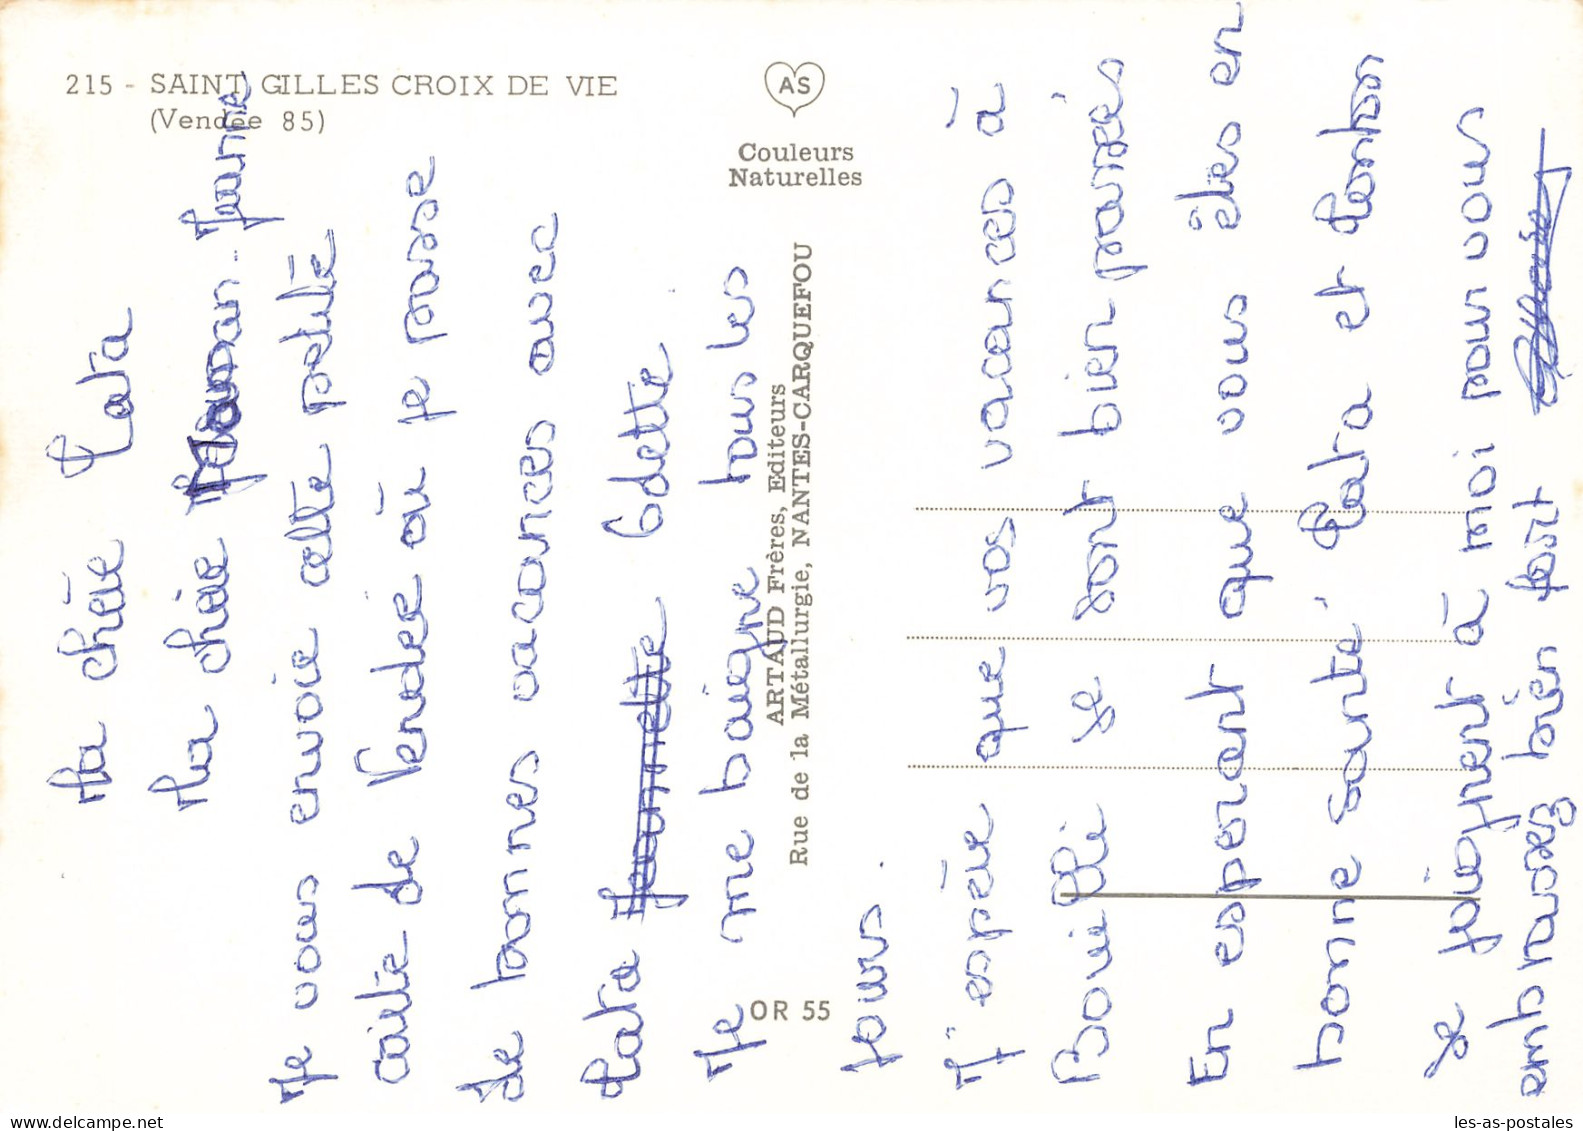 215 - SAINT GILLES CROIX DE VIE
(Vendée 85)
AS
Couleurs
Naturelles
ARTAUD Frères, Editeurs
Rue de la Métallurgie, NANTES-CARQUEFOU
OR 55
Ma chère Tata
Ma chère Jeanne
Je vous envoie cette petite
carte de Vendée où je passe
de bonnes vacances avec
tata Jeannette Odette
Je me baigne tous les
jours.
J'espère que vos vacances à
se sont bien passés
En esperant que vous êtes en
bonne santé Tata et tonton
se joignent à moi pour vous
embrassez bien fort
les-as-postales